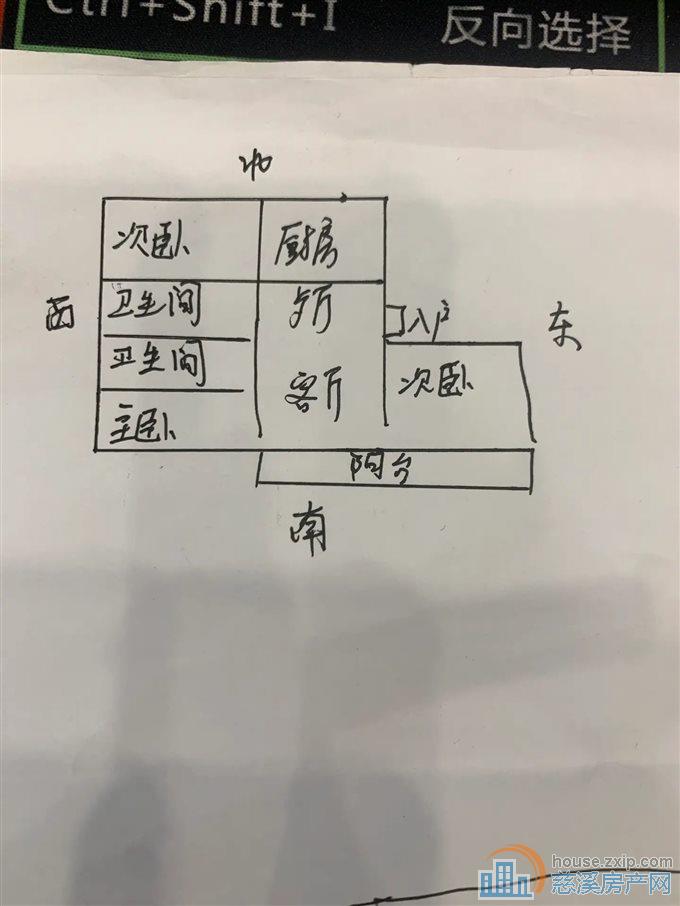 Ctrl+Shift+I 反向选择
北
次卧 厨房
西 卫生间 歺厅 入户 东
卫生间 客厅 次卧
主卧
阳台
南
house.zxip.com
慈溪房产网